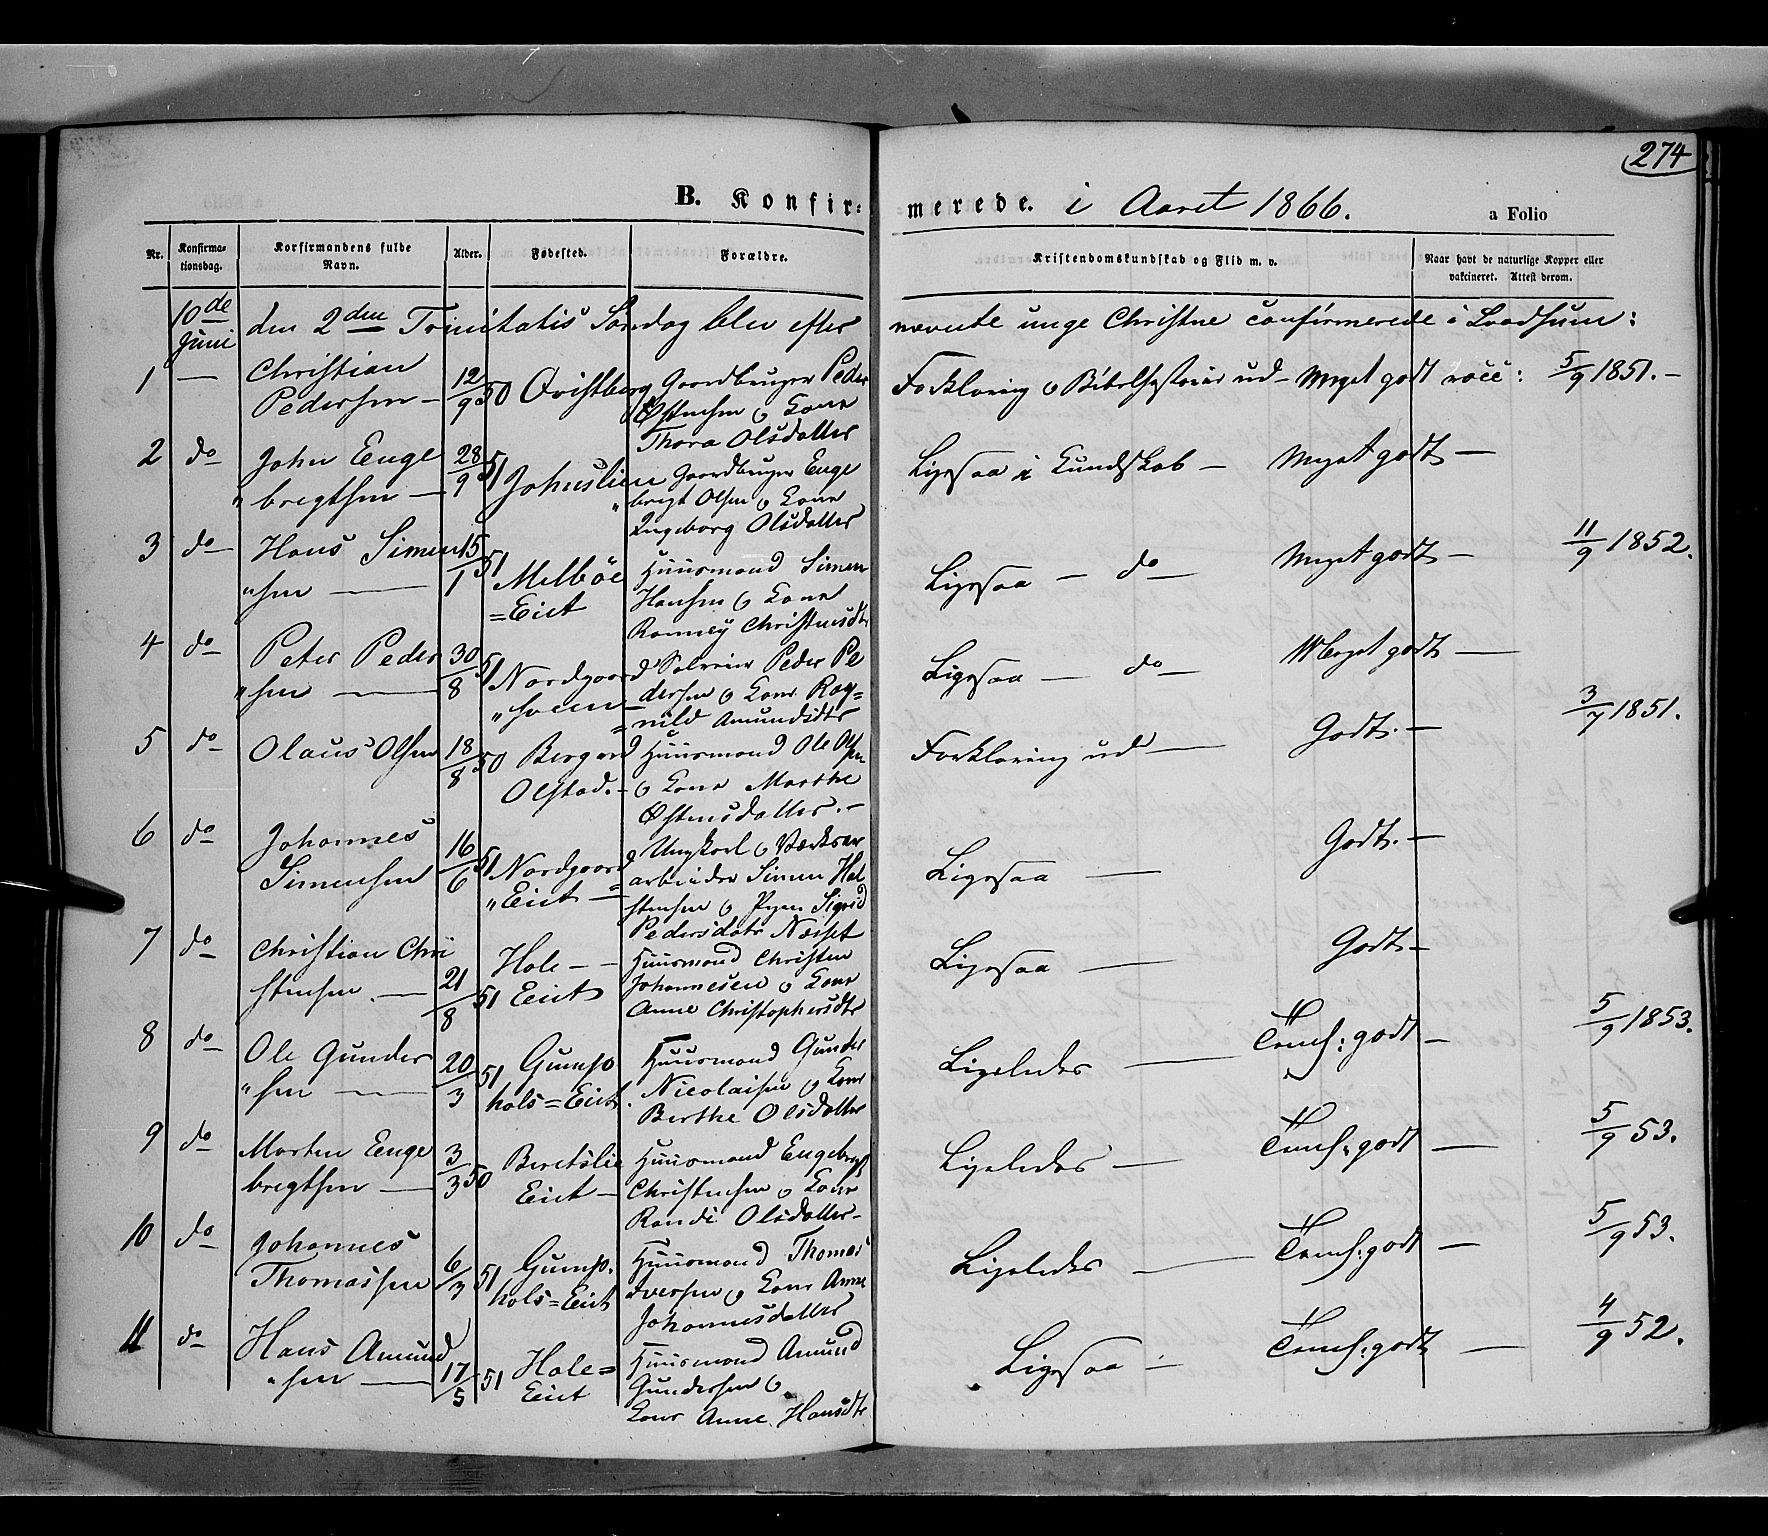 274
B. Konfirmerede. i Aaret 1866. a Folio
Nr. Konfirmationsdag. Korfirmandens fulde Navn. Alder. Fødested. Forældre. Kristendomskundskab og Flid m. v. Naar havt de naturlige Kopper eller vakcineret. Attest derom.
10de Juni den 2den Trinitatis Søndag blev efter nævnte unge Christne confirmerede i Svadsum:
1 — Christian Pedersen — 12/9 50 Qvistberg Gaardbruger Peder Østensen o Kone Thora Olsdatter
Forklaring o Bibelhistorie ud — Meget godt vacc: 5/9 1851. —
2 do John Enge
" bregtsen — 28/9 51 Johnslien Gaardbruger Enge
" bregt Olsen o Kone Ingeborg Olsdatter
Ligesaa i Kundskab — Meget godt —
3 do Hans Simen
" sen — 15/1 51 Melbøe
= Eiet Huusmand Simen Hansen o Kone Ronney Christensdtr
Ligesaa — do — Meget godt — 11/9 1852.
4 do Peter Peder
" sen — 30/8 51 Nordgaard
" Peder Pedersen o Kone Ragnild Amundsdtr
Ligesaa — do — Meget godt —
5 do Olaus Olsen 18/8 50 Olstad. — Huusmand Ole Olsen o Kone Marthe Østensdatter. —
Forklaring ud — Godt. — 3/7 1851.
6 do Johannes Simensen 16/6 51 Nordgaard
" Eiet = Ungkarl o arbeider Simen Halstensen o Pigen Sigrid Pedersdatr
Ligesaa — Godt. —
7 do Christian Christensen. — 21/8 51 Hole — — Eiet Huusmand Christen Johannesen o Kone Anne Christophersdtr
Ligesaa — Godt —
8 do Ole Gunder
" sen — 20/3 51 Gumpo
hols = Eiet. Huusmand Gunder Nicolaisen o Kone Berthe Olsdatter
Ligeledes — Tems: godt — 5/9 1853.
9 do Morten Engebregtsen — 3/3 50 Beretslie Eiet — Huusmand Engebregt Christensen o Kone Randi Olsdatter —
Ligeledes — Tems: godt — 5/9 53.
10 do Johannes Thomassen 6/3 51 Gump.
hols = Eiet Huusmand Thomas Iversen o Kone Anne Johannesdatter
Ligeledes — Tems: godt — 5/9 53.
11 do Hans Amund
" sen — 17/5 51 Hole =
Eiet Huusmand Amund Gundersen o Kone Anne Hansdtr
Ligesaa — Tems: godt — 4/9 52.